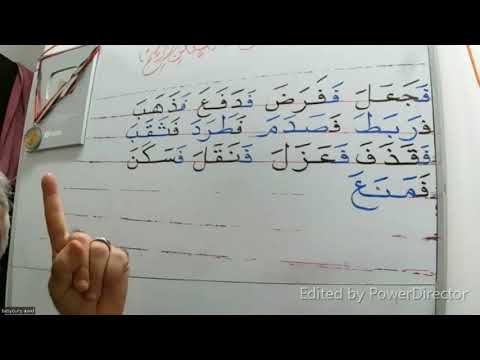 فَجَعَلَ فَفَرَضَ فَدَفَعَ فَذَهَبَ
فَرَبَطَ فَصَدَمَ فَطَرَدَ فَثَقَبَ
فَقَذَفَ فَعَزَلَ فَنَقَلَ فَسَكَنَ
فَمَنَعَ
Edited by PowerDirector